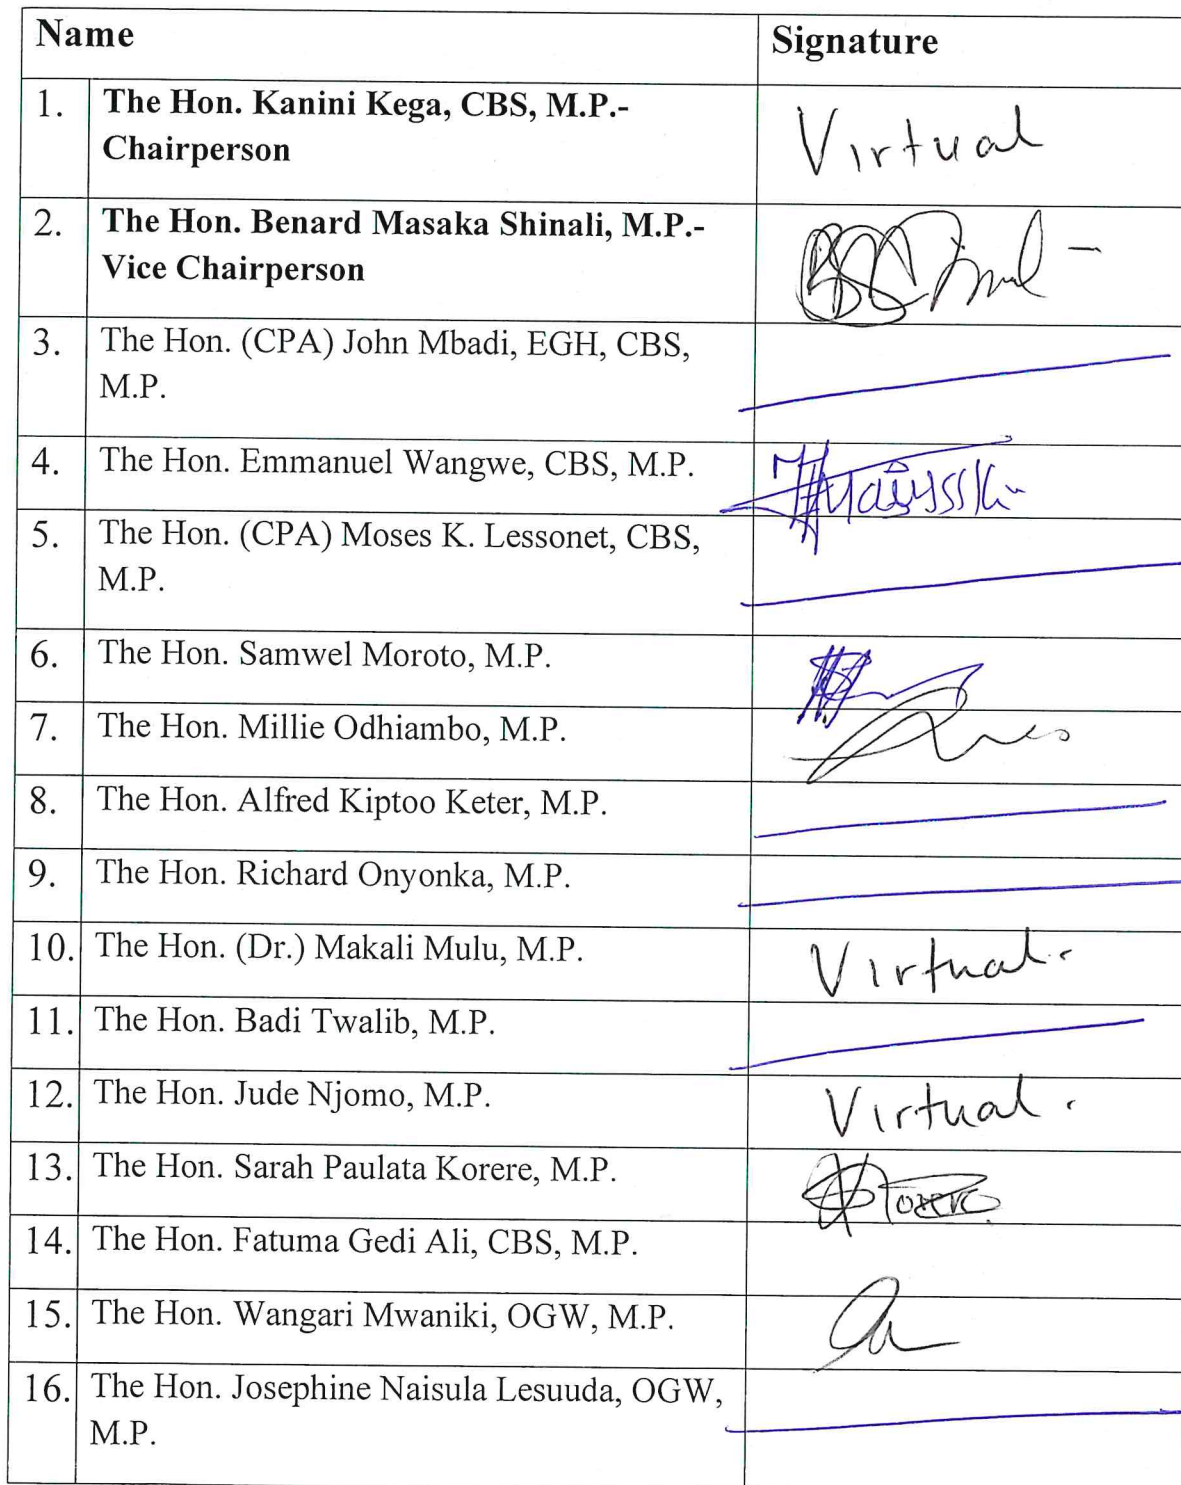 Name Signature
1. The Hon. Kanini Kega, CBS, M.P.- Virtual
Chairperson
2. The Hon. Benard Masaka Shinali, M.P.-
Vice Chairperson
3. The Hon. (CPA) John Mbadi, EGH, CBS,
M.P.
4. The Hon. Emmanuel Wangwe, CBS, M.P.
5. The Hon. (CPA) Moses K. Lessonet, CBS,
M.P.
6. The Hon. Samwel Moroto, M.P.
7. The Hon. Millie Odhiambo, M.P.
8. The Hon. Alfred Kiptoo Keter, M.P.
9. The Hon. Richard Onyonka, M.P.
10. The Hon. (Dr.) Makali Mulu, M.P. Virtual.
11. The Hon. Badi Twalib, M.P.
12. The Hon. Jude Njomo, M.P. Virtual.
13. The Hon. Sarah Paulata Korere, M.P.
14. The Hon. Fatuma Gedi Ali, CBS, M.P.
15. The Hon. Wangari Mwaniki, OGW, M.P.
16. The Hon. Josephine Naisula Lesuuda, OGW,
M.P.